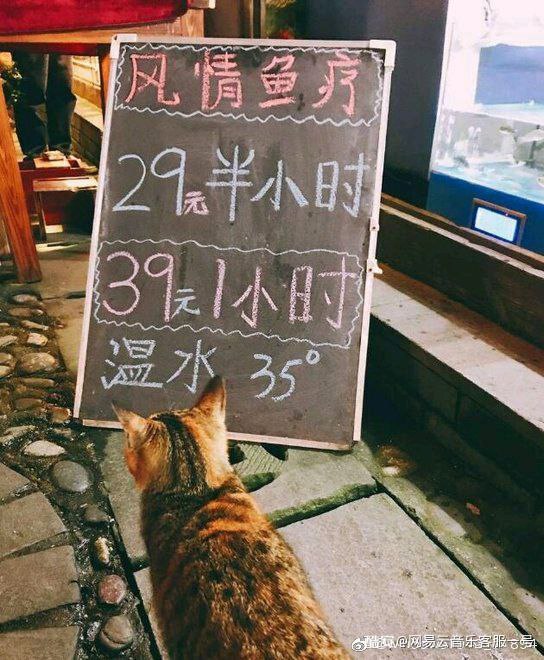 风情鱼疗
29元半小时
39元1小时
温水 35°
@网易云音乐客服一号